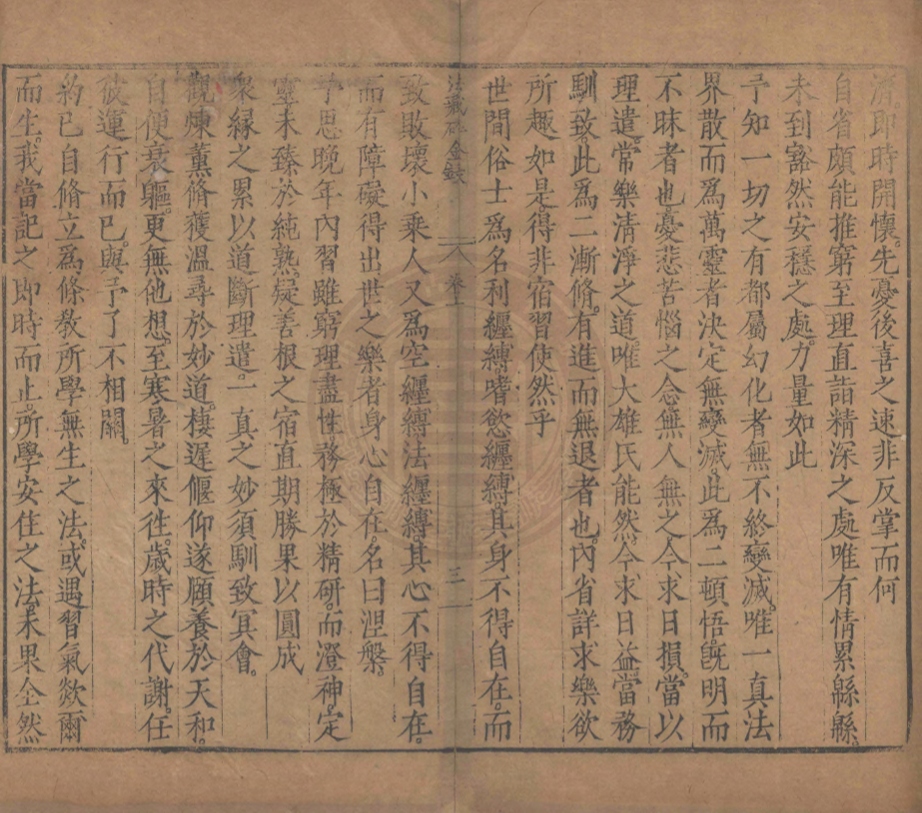 即時開懷先憂後喜之速非反掌而何
自省頗能推窮至理直詣精深之處唯有情累緜緜
未到豁然安穩之處力量如此
予知一切之有都屬幻化者無不終變滅唯一真法
界散而為萬靈者決定無變滅此為二頓悟旣明而
不昧者也憂悲苦惱之念無人無之今求日損當以
理遣常樂清淨之道唯大雄氏能然今求日益當務
馴致此為二漸脩有進而無退者也內省詳求樂欲
所趣如是得非宿習使然乎
世間俗士為名利纏縛嗜慾纏縛其身不得自在而
法藏碎金錄 卷 三
致敗壞小乘人又為空纏縛法纏縛其心不得自在
而有障礙得出世之樂者身心自在名曰涅槃
予思晚年內習雖窮理盡性務極於精研而澄神定
靈未臻於純熟疑善根之宿直期勝果以圓成
衆緣之累以道斷理遣一真之妙須馴致冥會
觀煉薰脩獲溫尋於妙道棲遲偃仰遂頤養於天和
自便衰軀更無他想至寒暑之來徃歲時之代謝任
彼運行而已與予了不相關
約已自脩立為條敎所學無生之法或遇習氣欻爾
而生我當記之即時而止所學安住之法未果全然